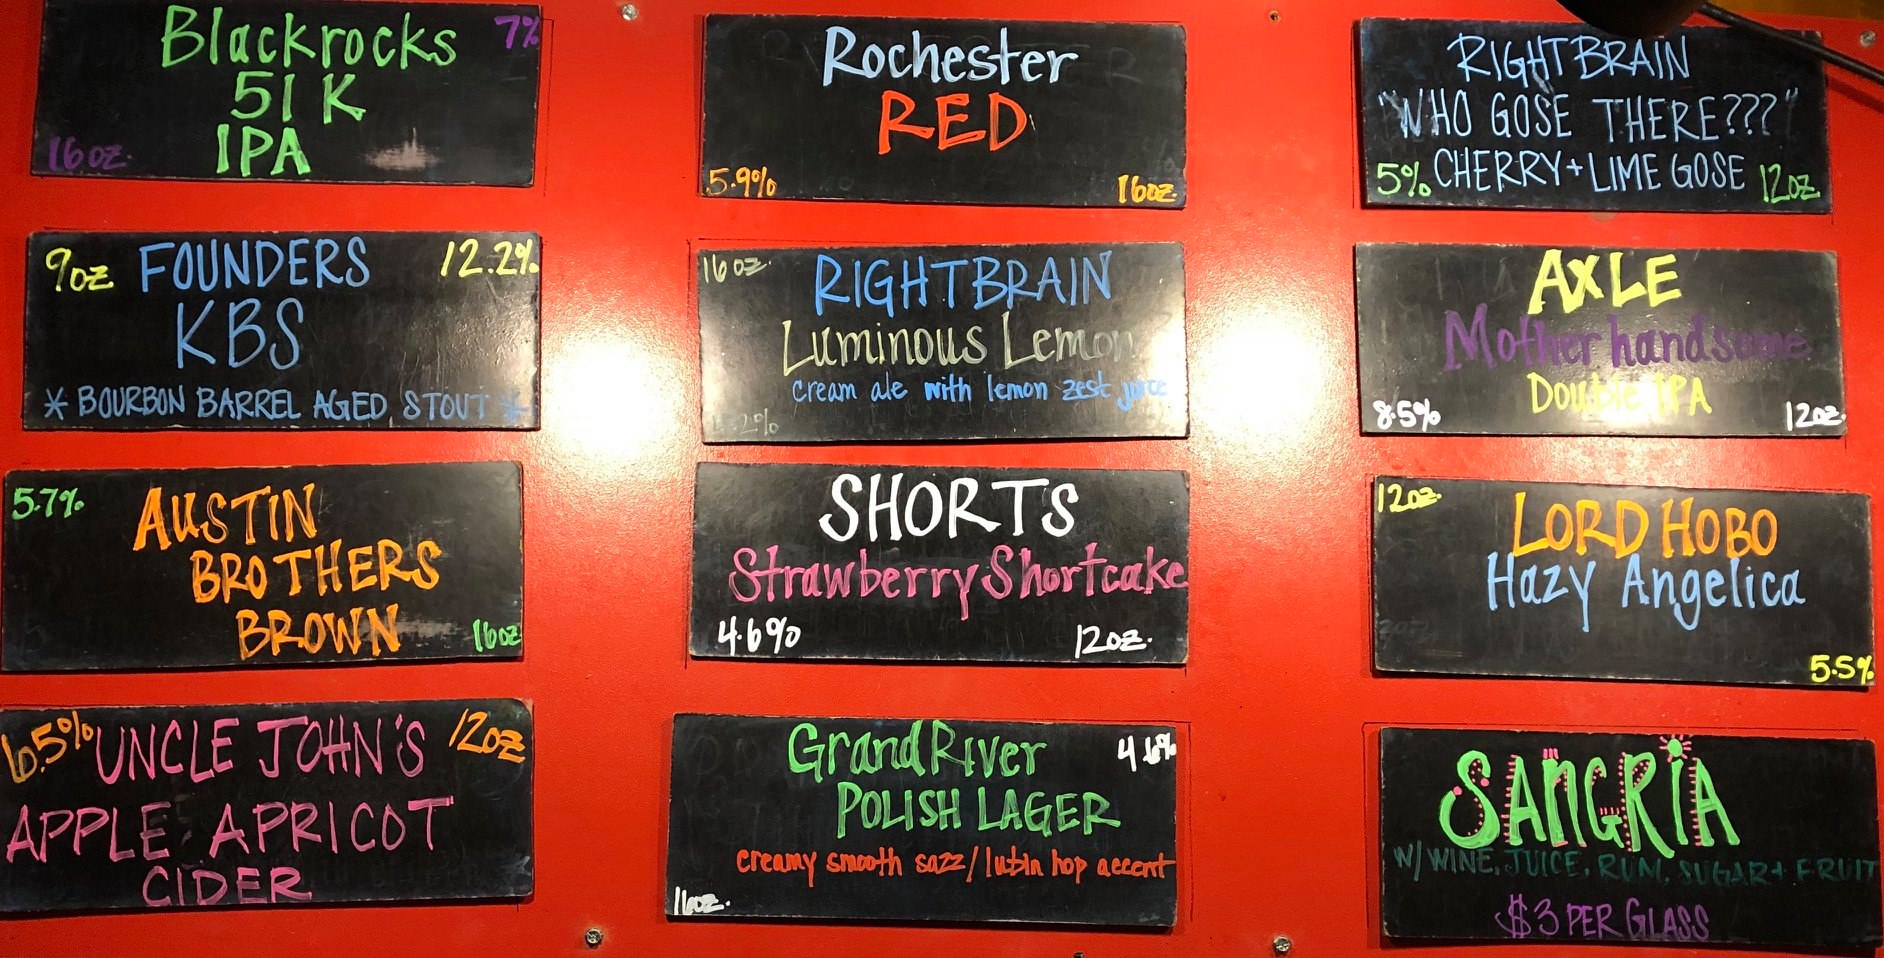 Blackrocks 7%
51K
IPA
16oz.
Rochester
RED
5.9% 16oz.
RIGHTBRAIN
"WHO GOSE THERE???"
CHERRY + LIME GOSE
5% 12oz
9oz FOUNDERS 12.2%
KBS
* BOURBON BARREL AGED STOUT *
16oz.
RIGHTBRAIN
Luminous Lemon
cream ale with lemon zest juice
AXLE
Mother handsome
Double IPA
8.5% 12oz.
5.7%
AUSTIN
BROTHERS
BROWN
16oz
SHORTS
Strawberry Shortcake
4.6% 12oz.
12oz.
LORD HOBO
Hazy Angelica
5.5%
6.5% UNCLE JOHN'S 12oz
APPLE APRICOT
CIDER
Grand River 4.6%
POLISH LAGER
creamy smooth sazz/lublin hop accent
16oz.
SANGRIA
W/ WINE, JUICE, RUM, SUGAR + FRUIT
$3 PER GLASS